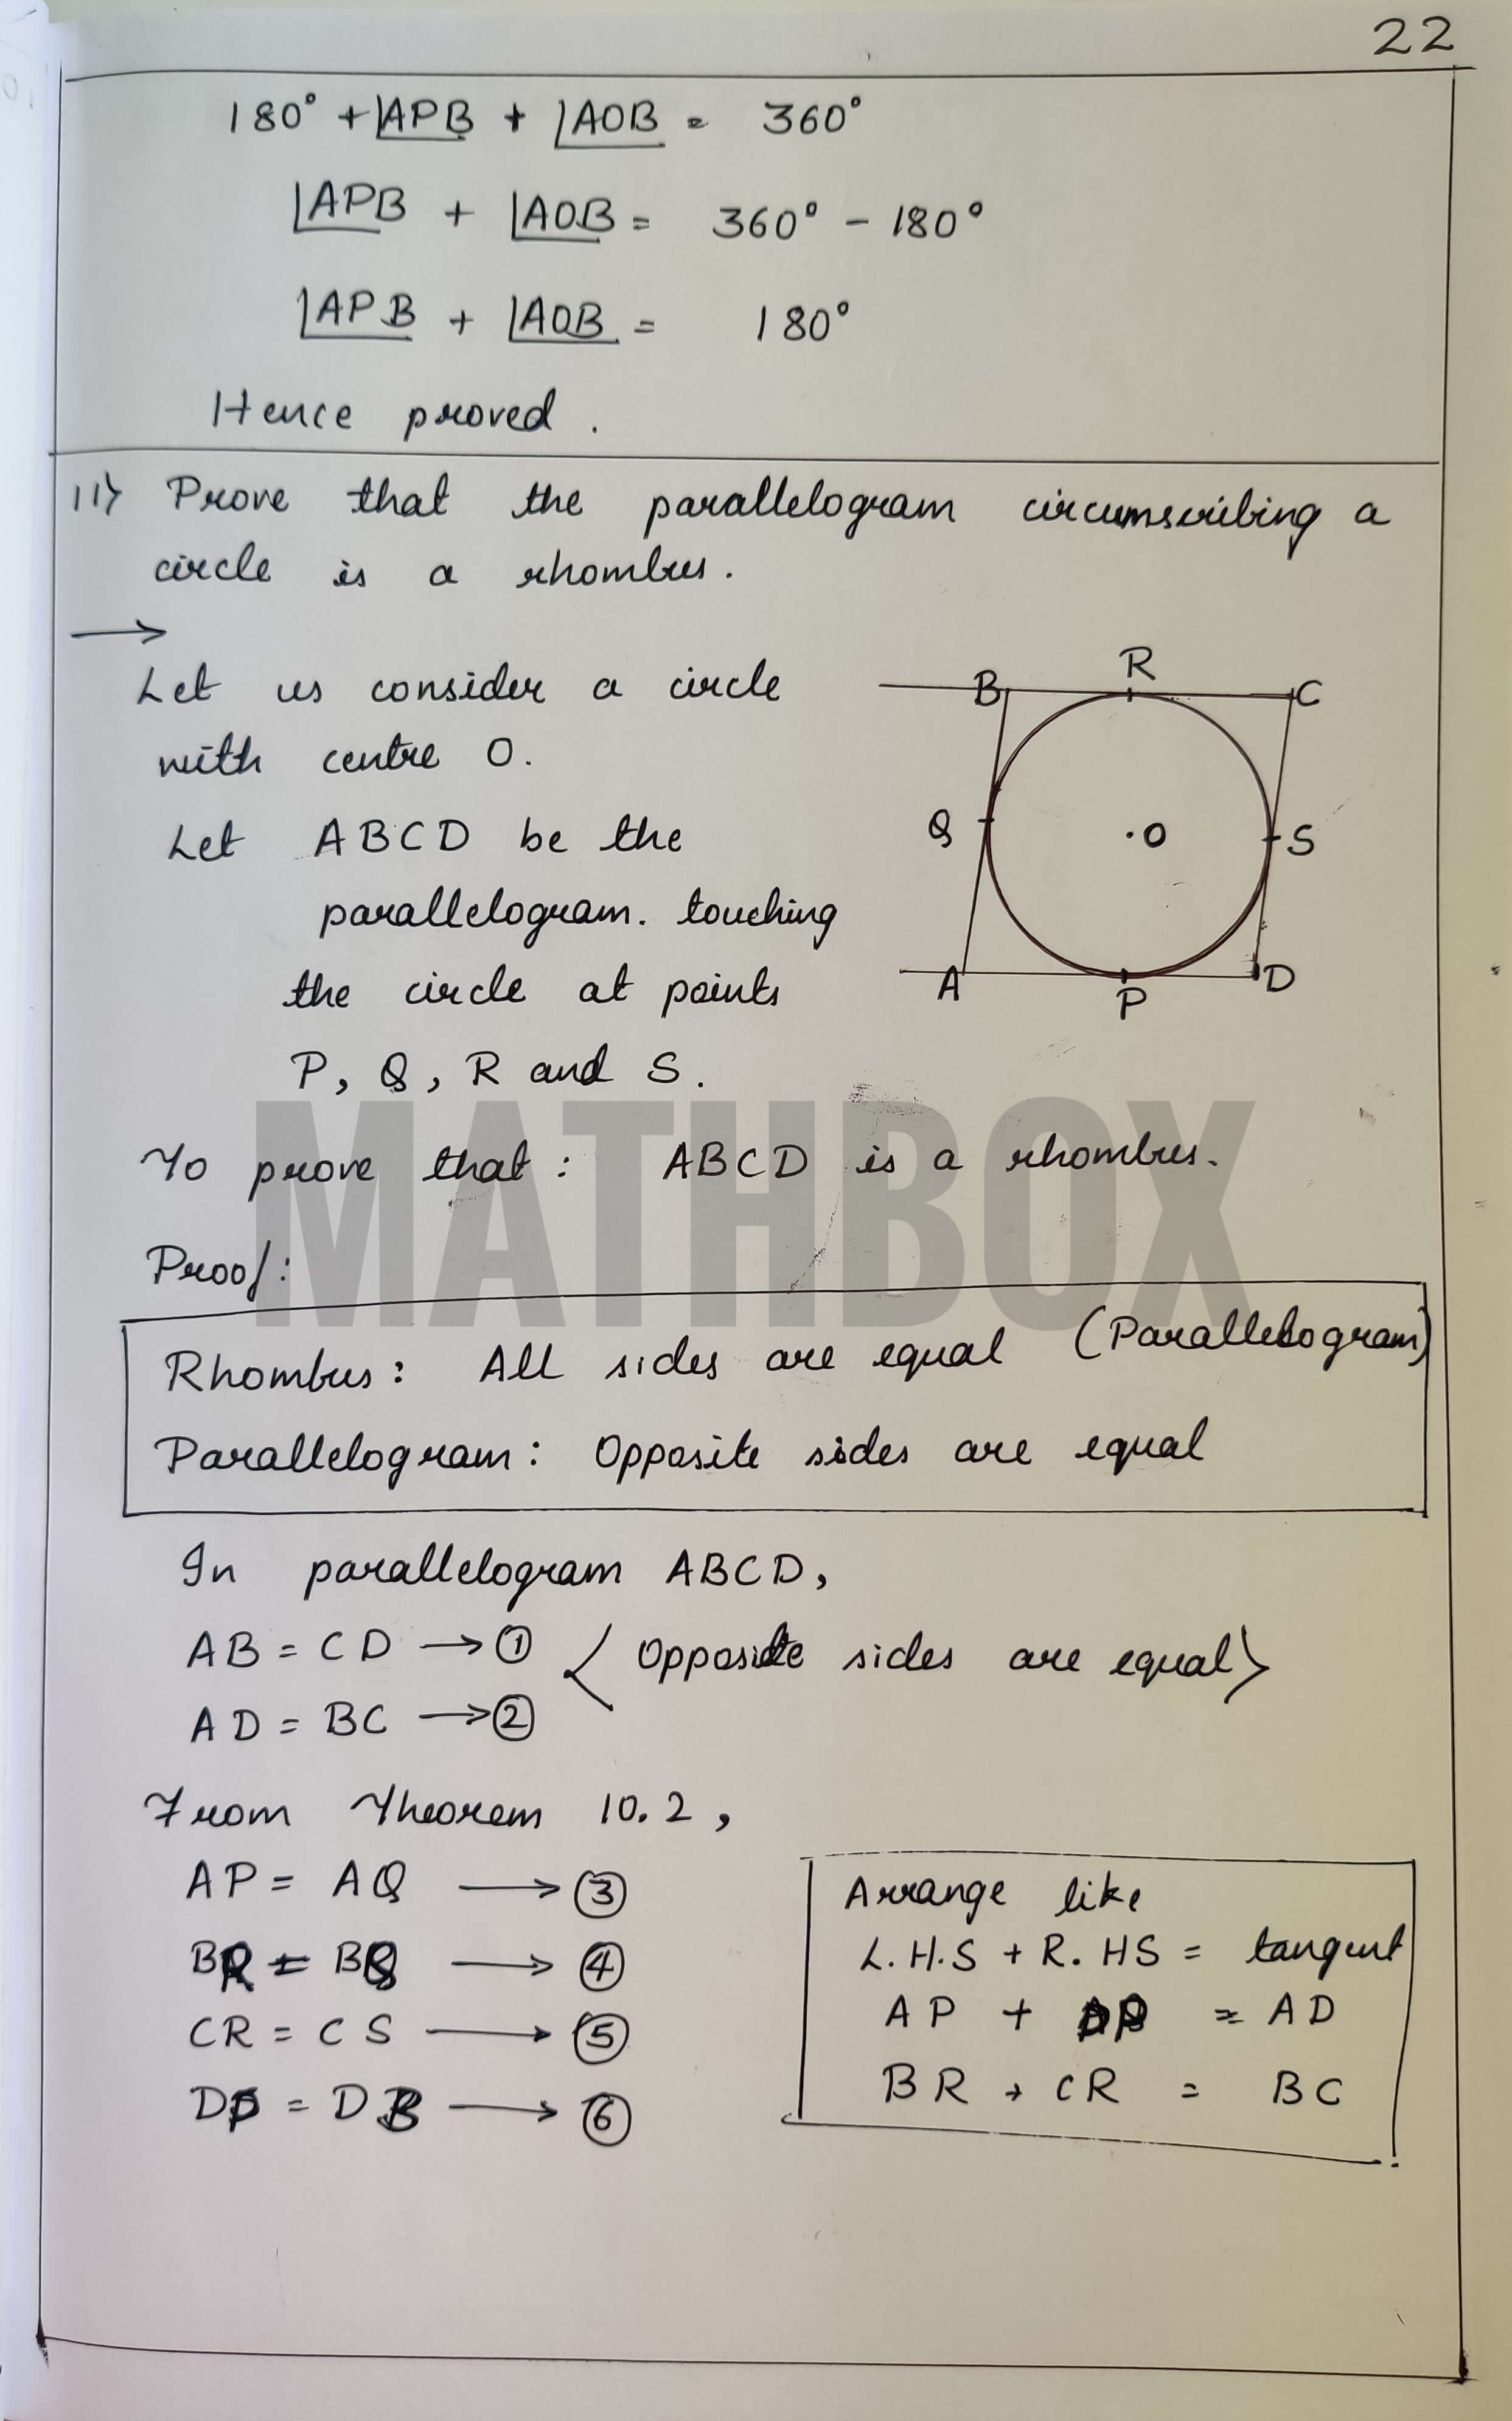 22
180° + ∠APB + ∠AOB = 360°
∠APB + ∠AOB = 360° - 180°
∠APB + ∠AOB = 180°
Hence proved.
11> Prove that the parallelogram circumscribing a
circle is a rhombus.
→
Let us consider a circle
with centre O.
Let ABCD be the
parallelogram. touching
the circle at points
P, Q, R and S.
B R C
Q .O S
A P D
MATHBOX
To prove that: ABCD is a rhombus.
Proof:
Rhombus: All sides are equal (Parallelogram)
Parallelogram: Opposite sides are equal
In parallelogram ABCD,
AB = CD → ① < Opposite sides are equal >
AD = BC → ②
From Theorem 10.2,
AP = AQ → ③
BR = BQ → ④
CR = CS → ⑤
DP = D → ⑥
Arrange like
L.H.S + R.HS = tangent
AP + DP = AD
BR + CR = BC